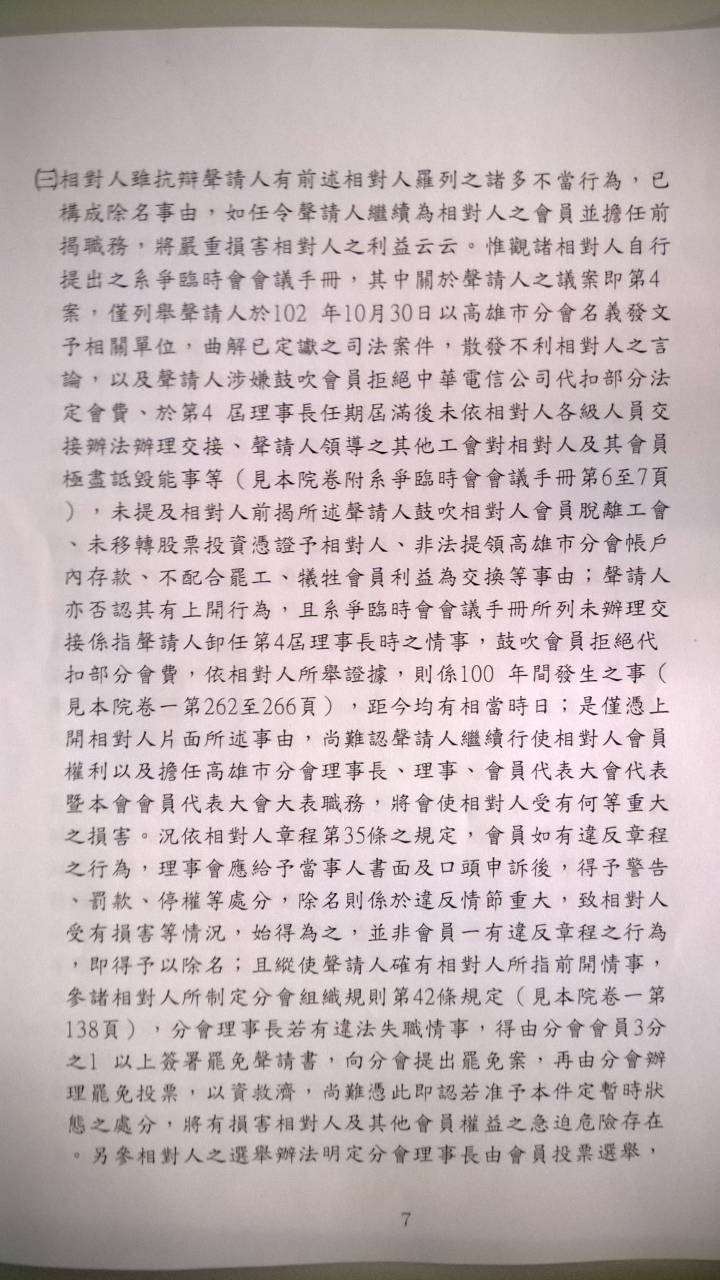 ㈢相對人雖抗辯聲請人有前述相對人羅列之諸多不當行為，已
構成除名事由，如任令聲請人繼續為相對人之會員並擔任前
揭職務，將嚴重損害相對人之利益云云。惟觀諸相對人自行
提出之系爭臨時會會議手冊，其中關於聲請人之議案即第4
案，僅列舉聲請人於102 年10月30日以高雄市分會名義發文
予相關單位，曲解已定讞之司法案件，散發不利相對人之言
論，以及聲請人涉嫌鼓吹會員拒絕中華電信公司代扣部分法
定會費、於第4 屆理事長任期屆滿後未依相對人各級人員交
接辦法辦理交接、聲請人領導之其他工會對相對人及其會員
極盡詆毀能事等（見本院卷附系爭臨時會會議手冊第6至7頁
），未提及相對人前揭所述聲請人鼓吹相對人會員脫離工會
、未移轉股票投資憑證予相對人、非法提領高雄市分會帳戶
內存款、不配合罷工、犧牲會員利益為交換等事由；聲請人
亦否認其有上開行為，且系爭臨時會會議手冊所列未辦理交
接係指聲請人卸任第4屆理事長時之情事，鼓吹會員拒絕代
扣部分會費，依相對人所舉證據，則係100 年間發生之事（
見本院卷一第262至266頁），距今均有相當時日；是僅憑上
開相對人片面所述事由，尚難認聲請人繼續行使相對人會員
權利以及擔任高雄市分會理事長、理事、會員代表大會代表
暨本會會員代表大會大表職務，將會使相對人受有何等重大
之損害。況依相對人章程第35條之規定，會員如有違反章程
之行為，理事會應給予當事人書面及口頭申訴後，得予警告
、罰款、停權等處分，除名則係於違反情節重大，致相對人
受有損害等情況，始得為之，並非會員一有違反章程之行為
，即得予以除名；且縱使聲請人確有相對人所指前開情事，
參諸相對人所制定分會組織規則第42條規定（見本院卷一第
138頁），分會理事長若有違法失職情事，得由分會會員3分
之1 以上簽署罷免聲請書，向分會提出罷免案，再由分會辦
理罷免投票，以資救濟，尚難憑此即認若准予本件定暫時狀
態之處分，將有損害相對人及其他會員權益之急迫危險存在
。另參相對人之選舉辦法明定分會理事長由會員投票選舉，
7